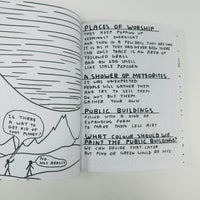 IS THERE
A WAY TO
GET RID OF
THAT PLANET?
NO,
NOT REALLY
PLACES OF WORSHIP
THEY KEEP POPPING UP
SEEMINGLY OVERNIGHT
AND THEN IN A FEW DAYS THEY ARE GONE
IT IS AS IF THEY HAD NEVER BEEN THERE
THE ONLY TRACE IS AN AREA OF
YELLOWED GRASS
AND AN ODD SMELL
LIKE STALE POPCORN
A SHOWER OF METEORITES
IT WAS UNEXPECTED
PEOPLE WILL GATHER THEM
AND TRY TO SELL THEM
DO NOT BUY THEM
GATHER YOUR OWN
PUBLIC BUILDINGS
FILLED WITH A KIND OF
EXPANDING FOAM
TO MAKE THEM SAFE
WHAT COLOUR SHOULD WE
PAINT THE PUBLIC BUILDINGS?
WE CAN DECIDE THAT LATER
BUT PINK OR GREEN WOULD BE NICE